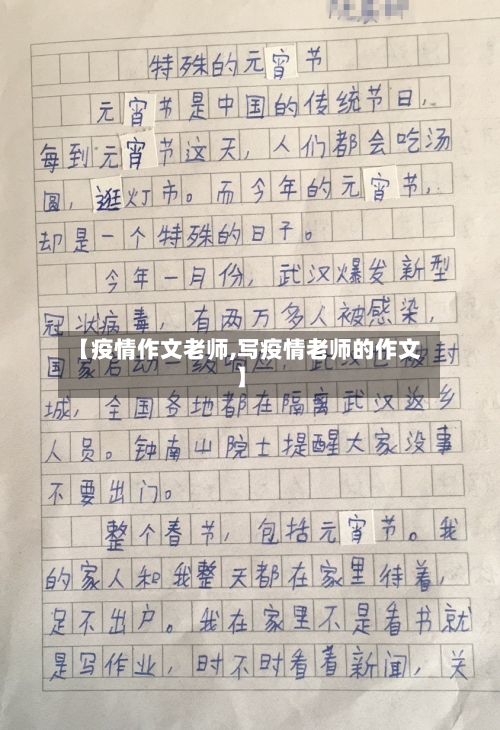 特殊的元宵节
元宵节是中国的传统节日，
每到元宵节这天，人们都会吃汤
圆，逛灯市。而今年的元宵节，
却是一个特殊的日子。
今年一月份，武汉爆发新型
冠状病毒，有两万多人被感染，
【疫情作文老师,写疫情老师的作文
】
国家启动一级响应，武汉已被封
城，全国各地都在隔离武汉返乡
人员。钟南山院士提醒大家没事
不要出门。
整个春节，包括元宵节。我
的家人和我整天都在家里待着，
足不出户。我在家里不是看书就
是写作业，时不时看着新闻，关